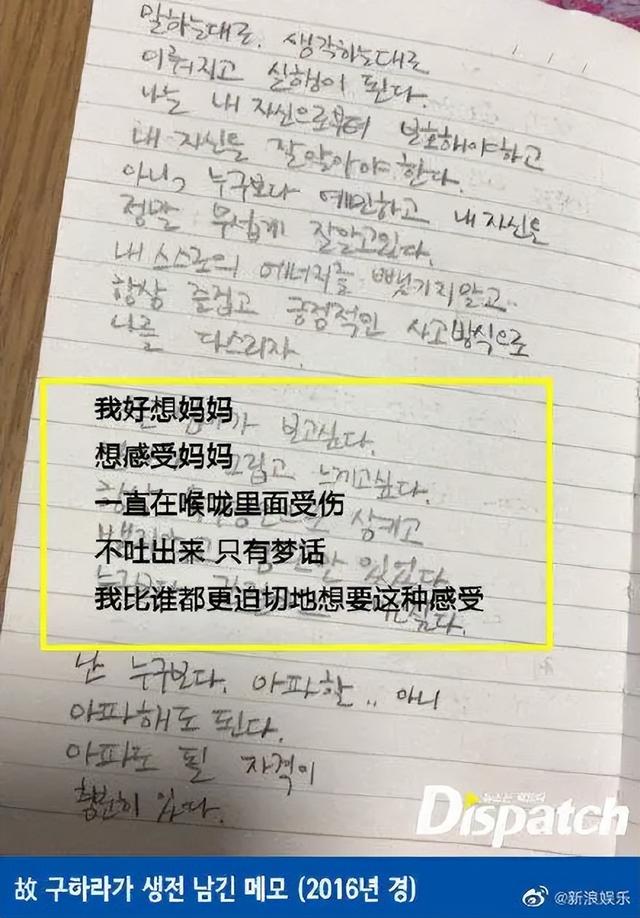 말하는대로. 생각하는대로
이뤄지고 실행이 된다.
나는 내 자신으로부터 보호해야하고
내 자신을 잘알아야 한다.
아니, 누구보다 예민하고 내 자신을
정말 무섭게 잘알고있다.
내 스스로의 에너지를 뺏기지말고..
항상 즐겁고 긍정적인 사고방식으로
나를 다스리자.
我好想妈妈
가 보고싶다.
想感受妈妈
그립고 느끼고싶다.
一直在喉咙里面受伤
삼키고
不吐出来 只有梦话
있었다
我比谁都更迫切地想要这种感受
싶다.
난 누구보다. 아파할.. 아니
아파해도 된다.
아파도 될 자격이
충분히 있다.
Dispatch
故 구하라가 생전 남긴 메모 (2016년 경)
@新浪娱乐